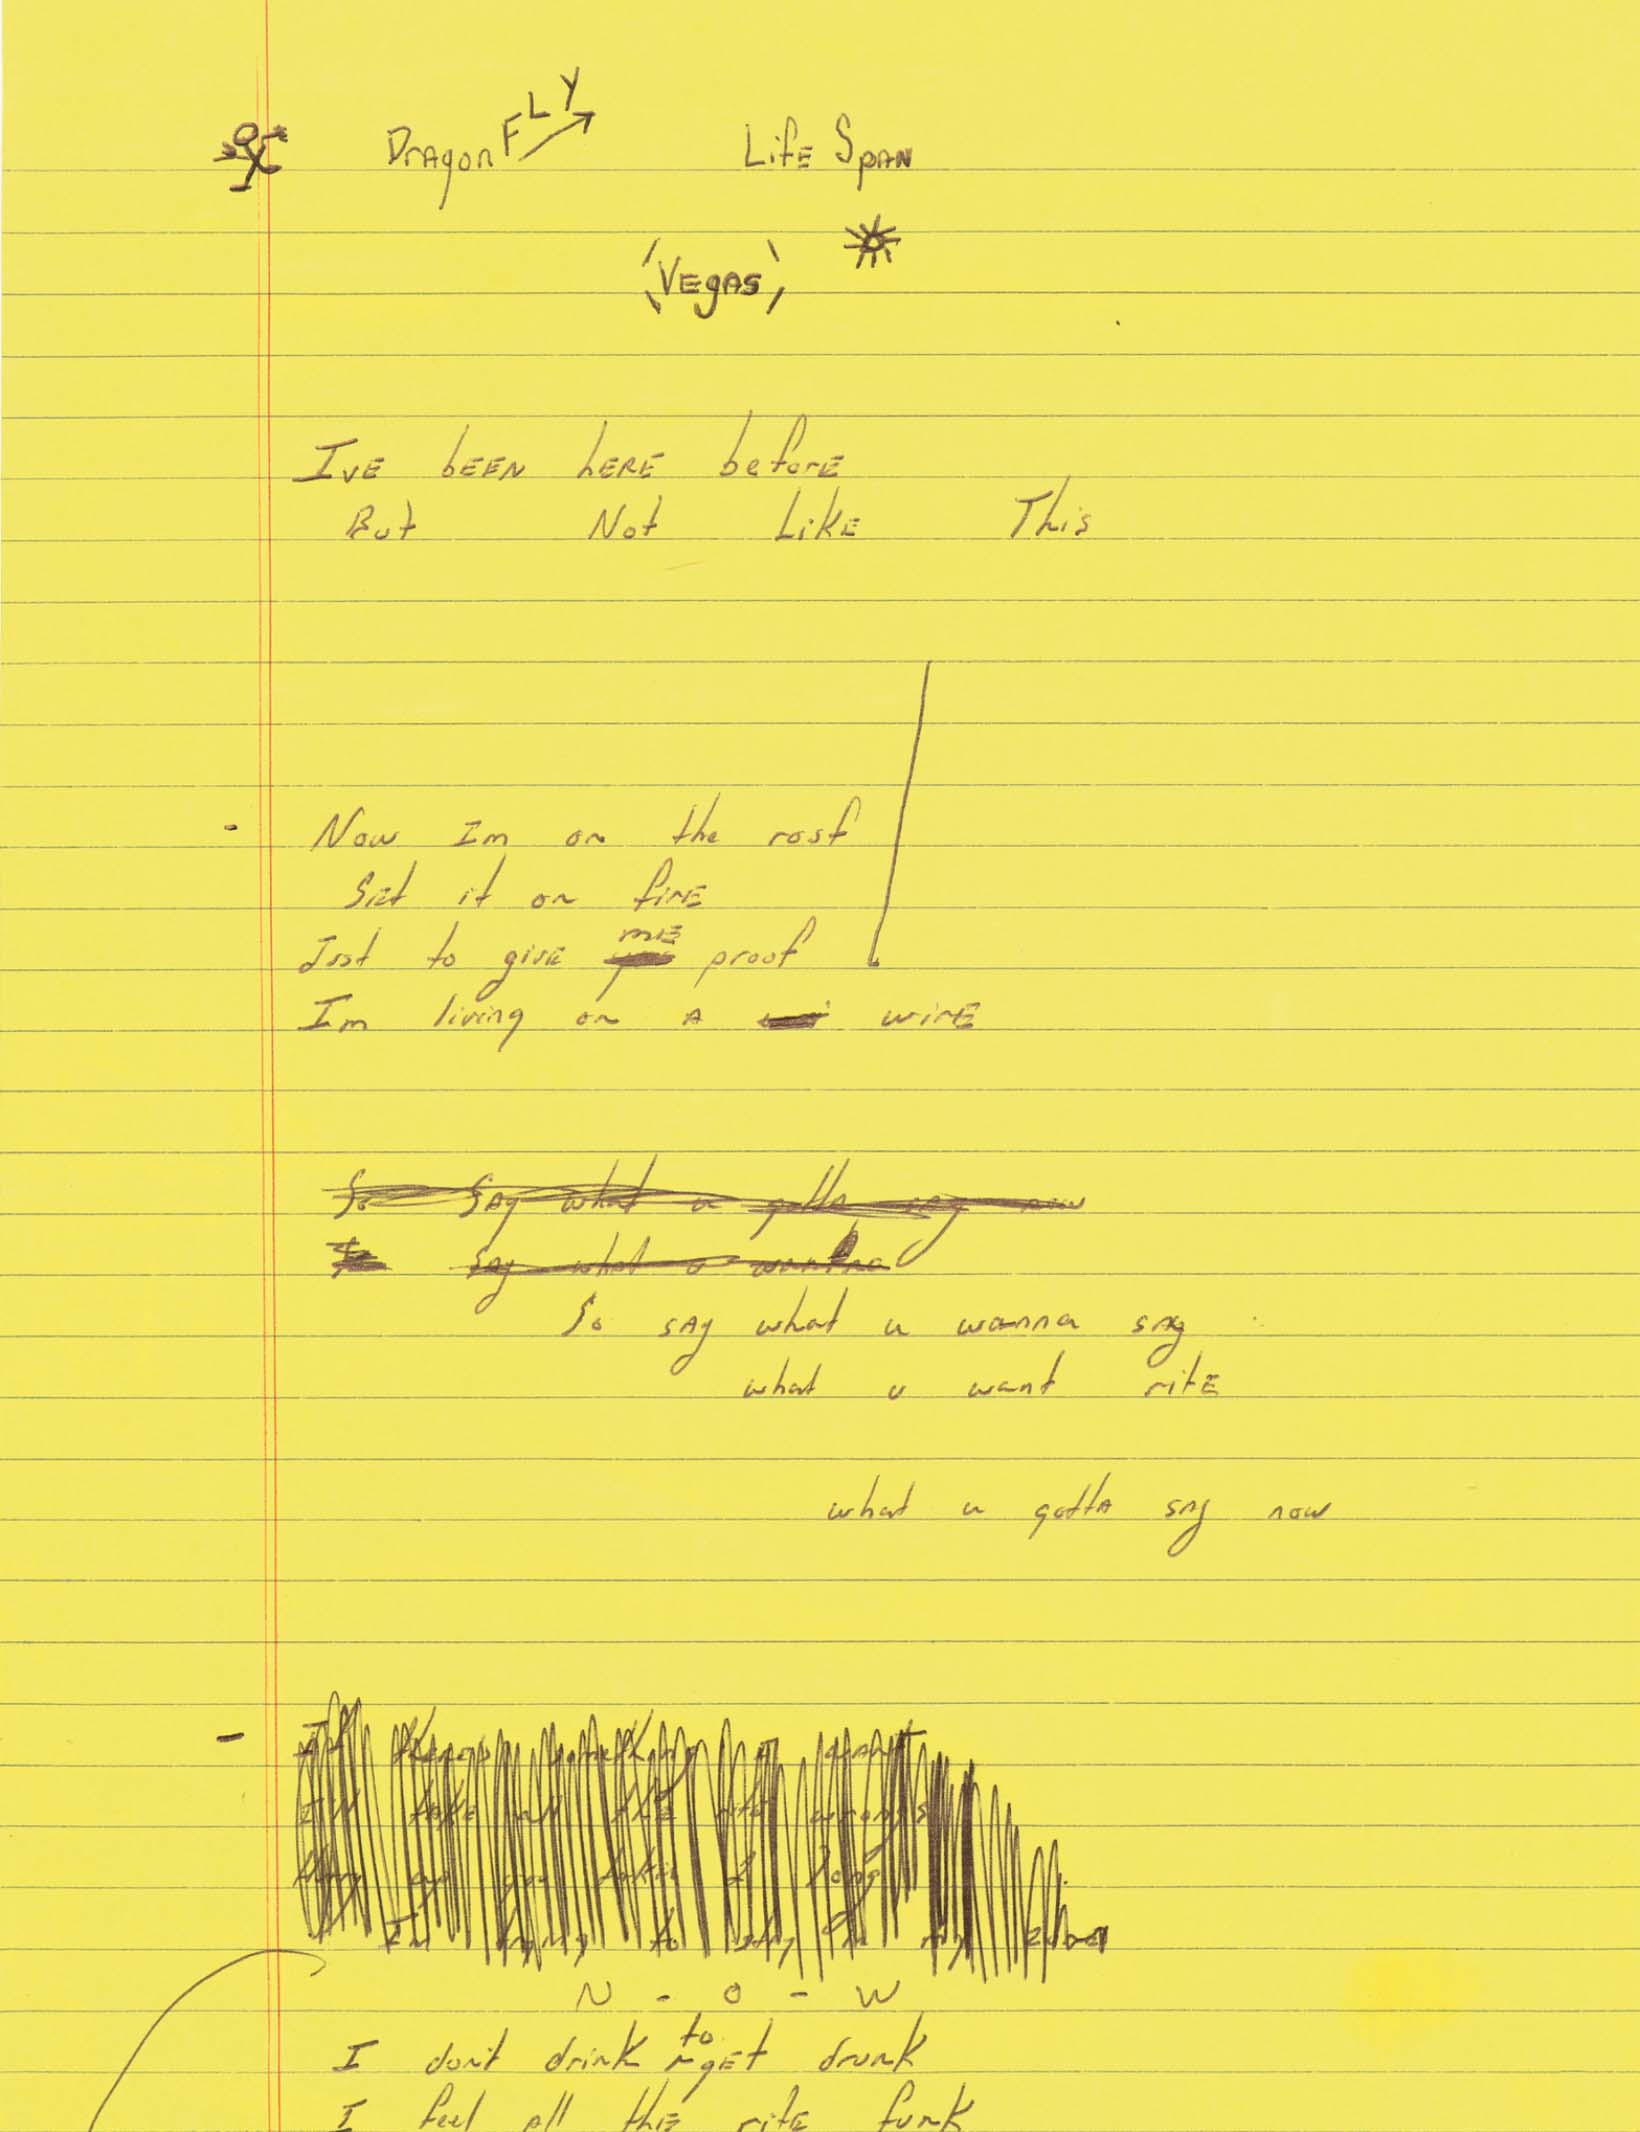 DragonFLY Life Span
Vegas
Ive been here before
But Not Like This
Now Im on the roof
Set it on fire
Just to give me proof
Im living on a wire
So say what u gotta say now
say what u wanna
So say what u wanna say
what u want rite
what u gotta say now
take all the rite wrongs
to my
N - O - W
I don't drink to get drunk
I feel all the rite funk